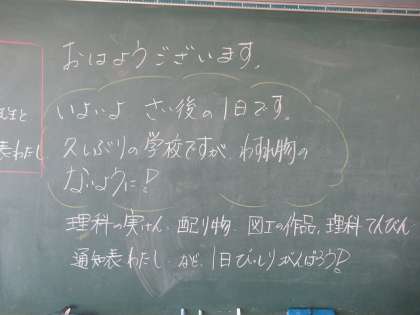 おはようございます。
いよいよ さい後の1日です。
久しぶりの学校ですが、わすれ物の
ないように!
理科の実けん、配り物、図工の作品、理科てんびん
通知表わたし、など、1日びっしりがんばろう!
生と
表わたし